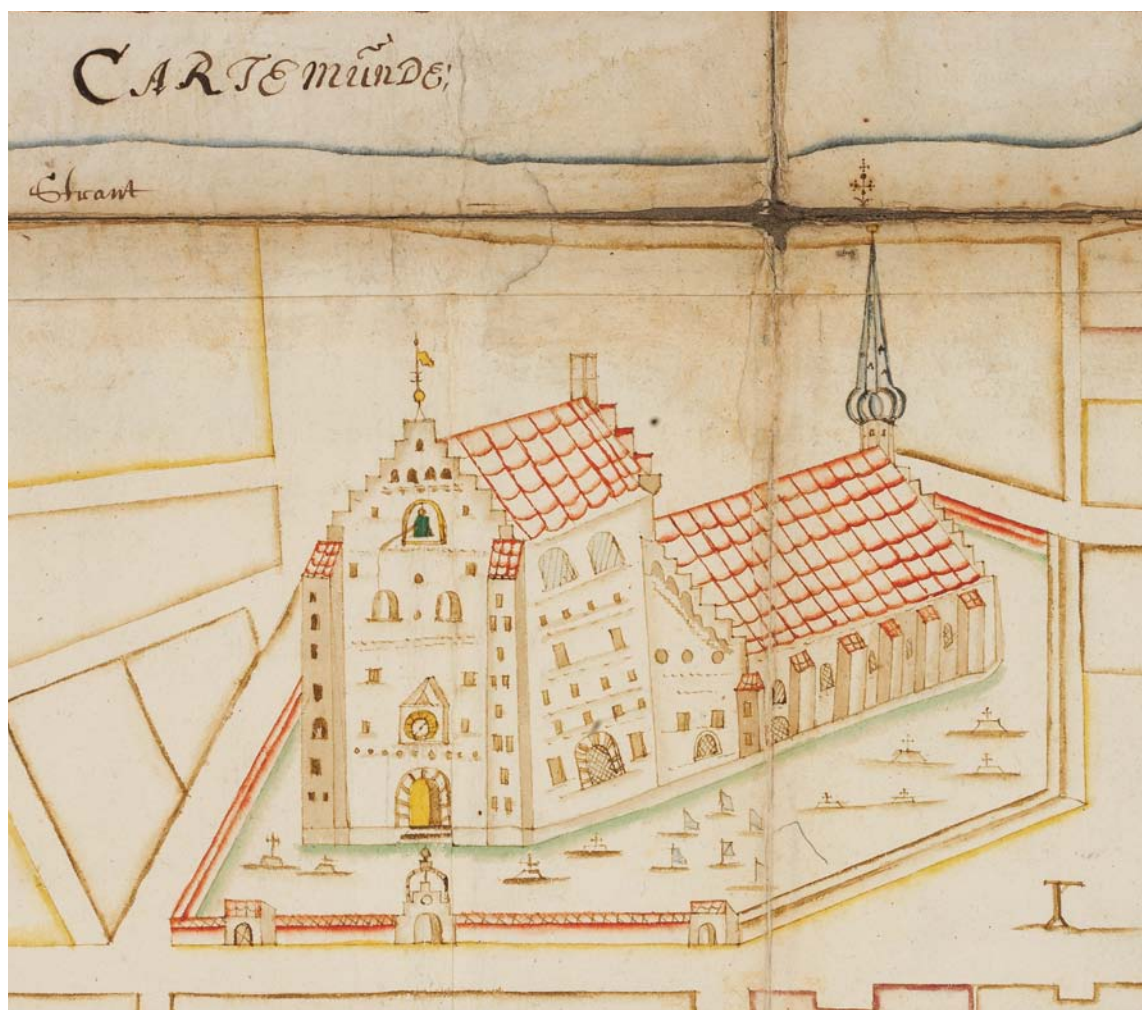 CARTEMŨNDE;
Strant